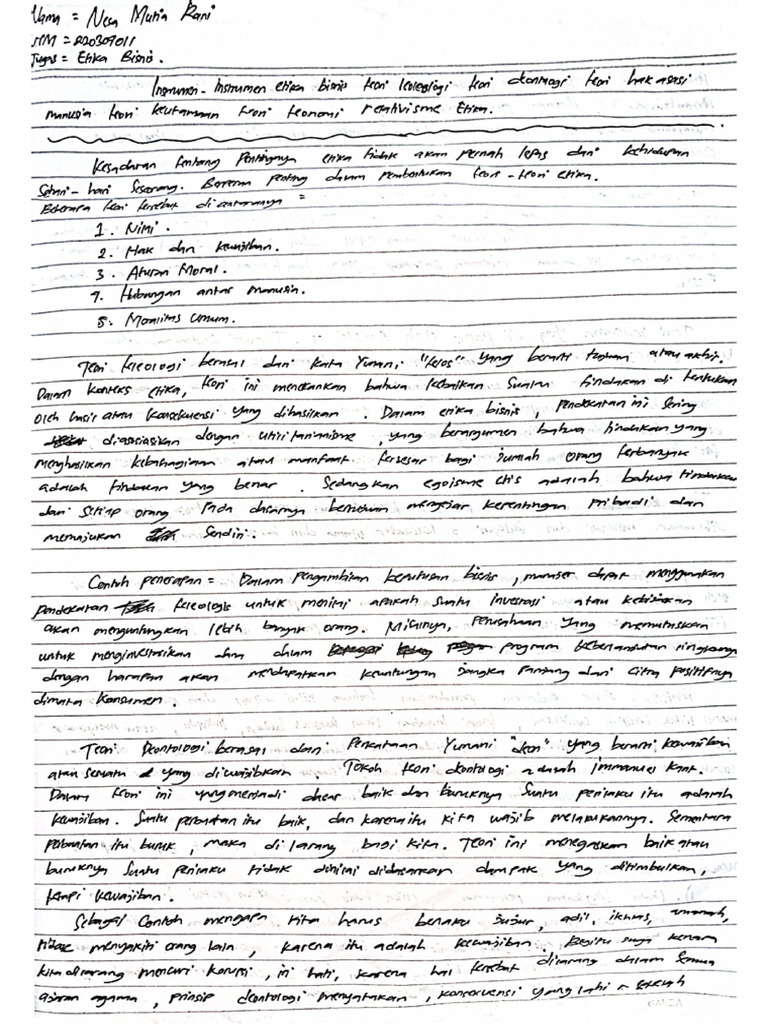 Nama = Nesa Mutia Rani
NIM = 220309011
Tugas = Etika Bisnis.
Instrumen-Instrumen etika bisnis teori teleologi teori deontologi teori hak asasi
manusia teori keutamaan teori teonomi relativisme Etika.
Kesadaran tentang pentingnya etika tidak akan pernah lepas dari kehidupan
Sehari-hari Seseorang. Berperan penting dalam pembentukan teori-teori etika.
Beberapa teori tersebut di antaranya =
1. Nilai.
2. Hak dan kewajiban.
3. Aturan Moral.
4. Hubungan antar manusia.
5. Moralitas Umum.
Teori teleologi berasal dari kata Yunani, "telos" yang berarti tujuan atau akhir.
Dalam konteks etika, teori ini menekankan bahwa kebaikan Suatu tindakan di tentukan
oleh hasil atau konsekuensi yang dihasilkan. Dalam etika bisnis, pendekatan ini Sering
diasosiasikan dengan utilitarianisme, yang berargumen bahwa tindakan yang
menghasilkan kebahagiaan atau manfaat terbesar bagi jumlah orang terbanyak
adalah tindakan yang benar. Sedangkan egoisme etis adalah bahwa tindakan
dari setiap orang pada dasarnya bertujuan mengejar kepentingan pribadi dan
memajukan Sendiri.
Contoh penerapan = Dalam Pengambilan keputusan bisnis, manajer dapat menggunakan
pendekatan teleologis untuk menilai apakah suatu investasi atau kebijakan
akan menguntungkan lebih banyak orang. Misalnya, Perusahaan yang memutuskan
untuk menginvestasikan dana dalam program keberlanjutan lingkungan
dengan harapan akan mendapatkan keuntungan jangka panjang dari Citra positifnya
dimata konsumen.
Teori Deontologi berasal dari Perkataan Yunani "deon" yang berarti kewajiban
atau sesuatu yang diwajibkan. Tokoh teori deontologi adalah Immanuel Kant.
Dalam teori ini yang menjadi dasar baik dan buruknya Suatu perilaku itu adalah
kewajiban. Suatu perbuatan itu baik, dan karena itu kita wajib melakukannya. Sementara
Perbuatan itu buruk, maka di larang bagi kita. Teori ini menegaskan baik atau
buruknya Suatu perilaku tidak dinilai didasarkan dampak yang ditimbulkan,
tetapi kewajiban.
Sebagai Contoh mengapa kita harus berlaku jujur, adil, ikhlas, amanah,
tidak menyakiti orang lain, karena itu adalah kewajiban. Begitu juga kenapa
kita dilarang mencuri korupsi, iri hati, karena hal tersebut dilarang dalam Semua
ajaran agama, prinsip deontologi menyatakan, konsekuensi yang lahir setelah